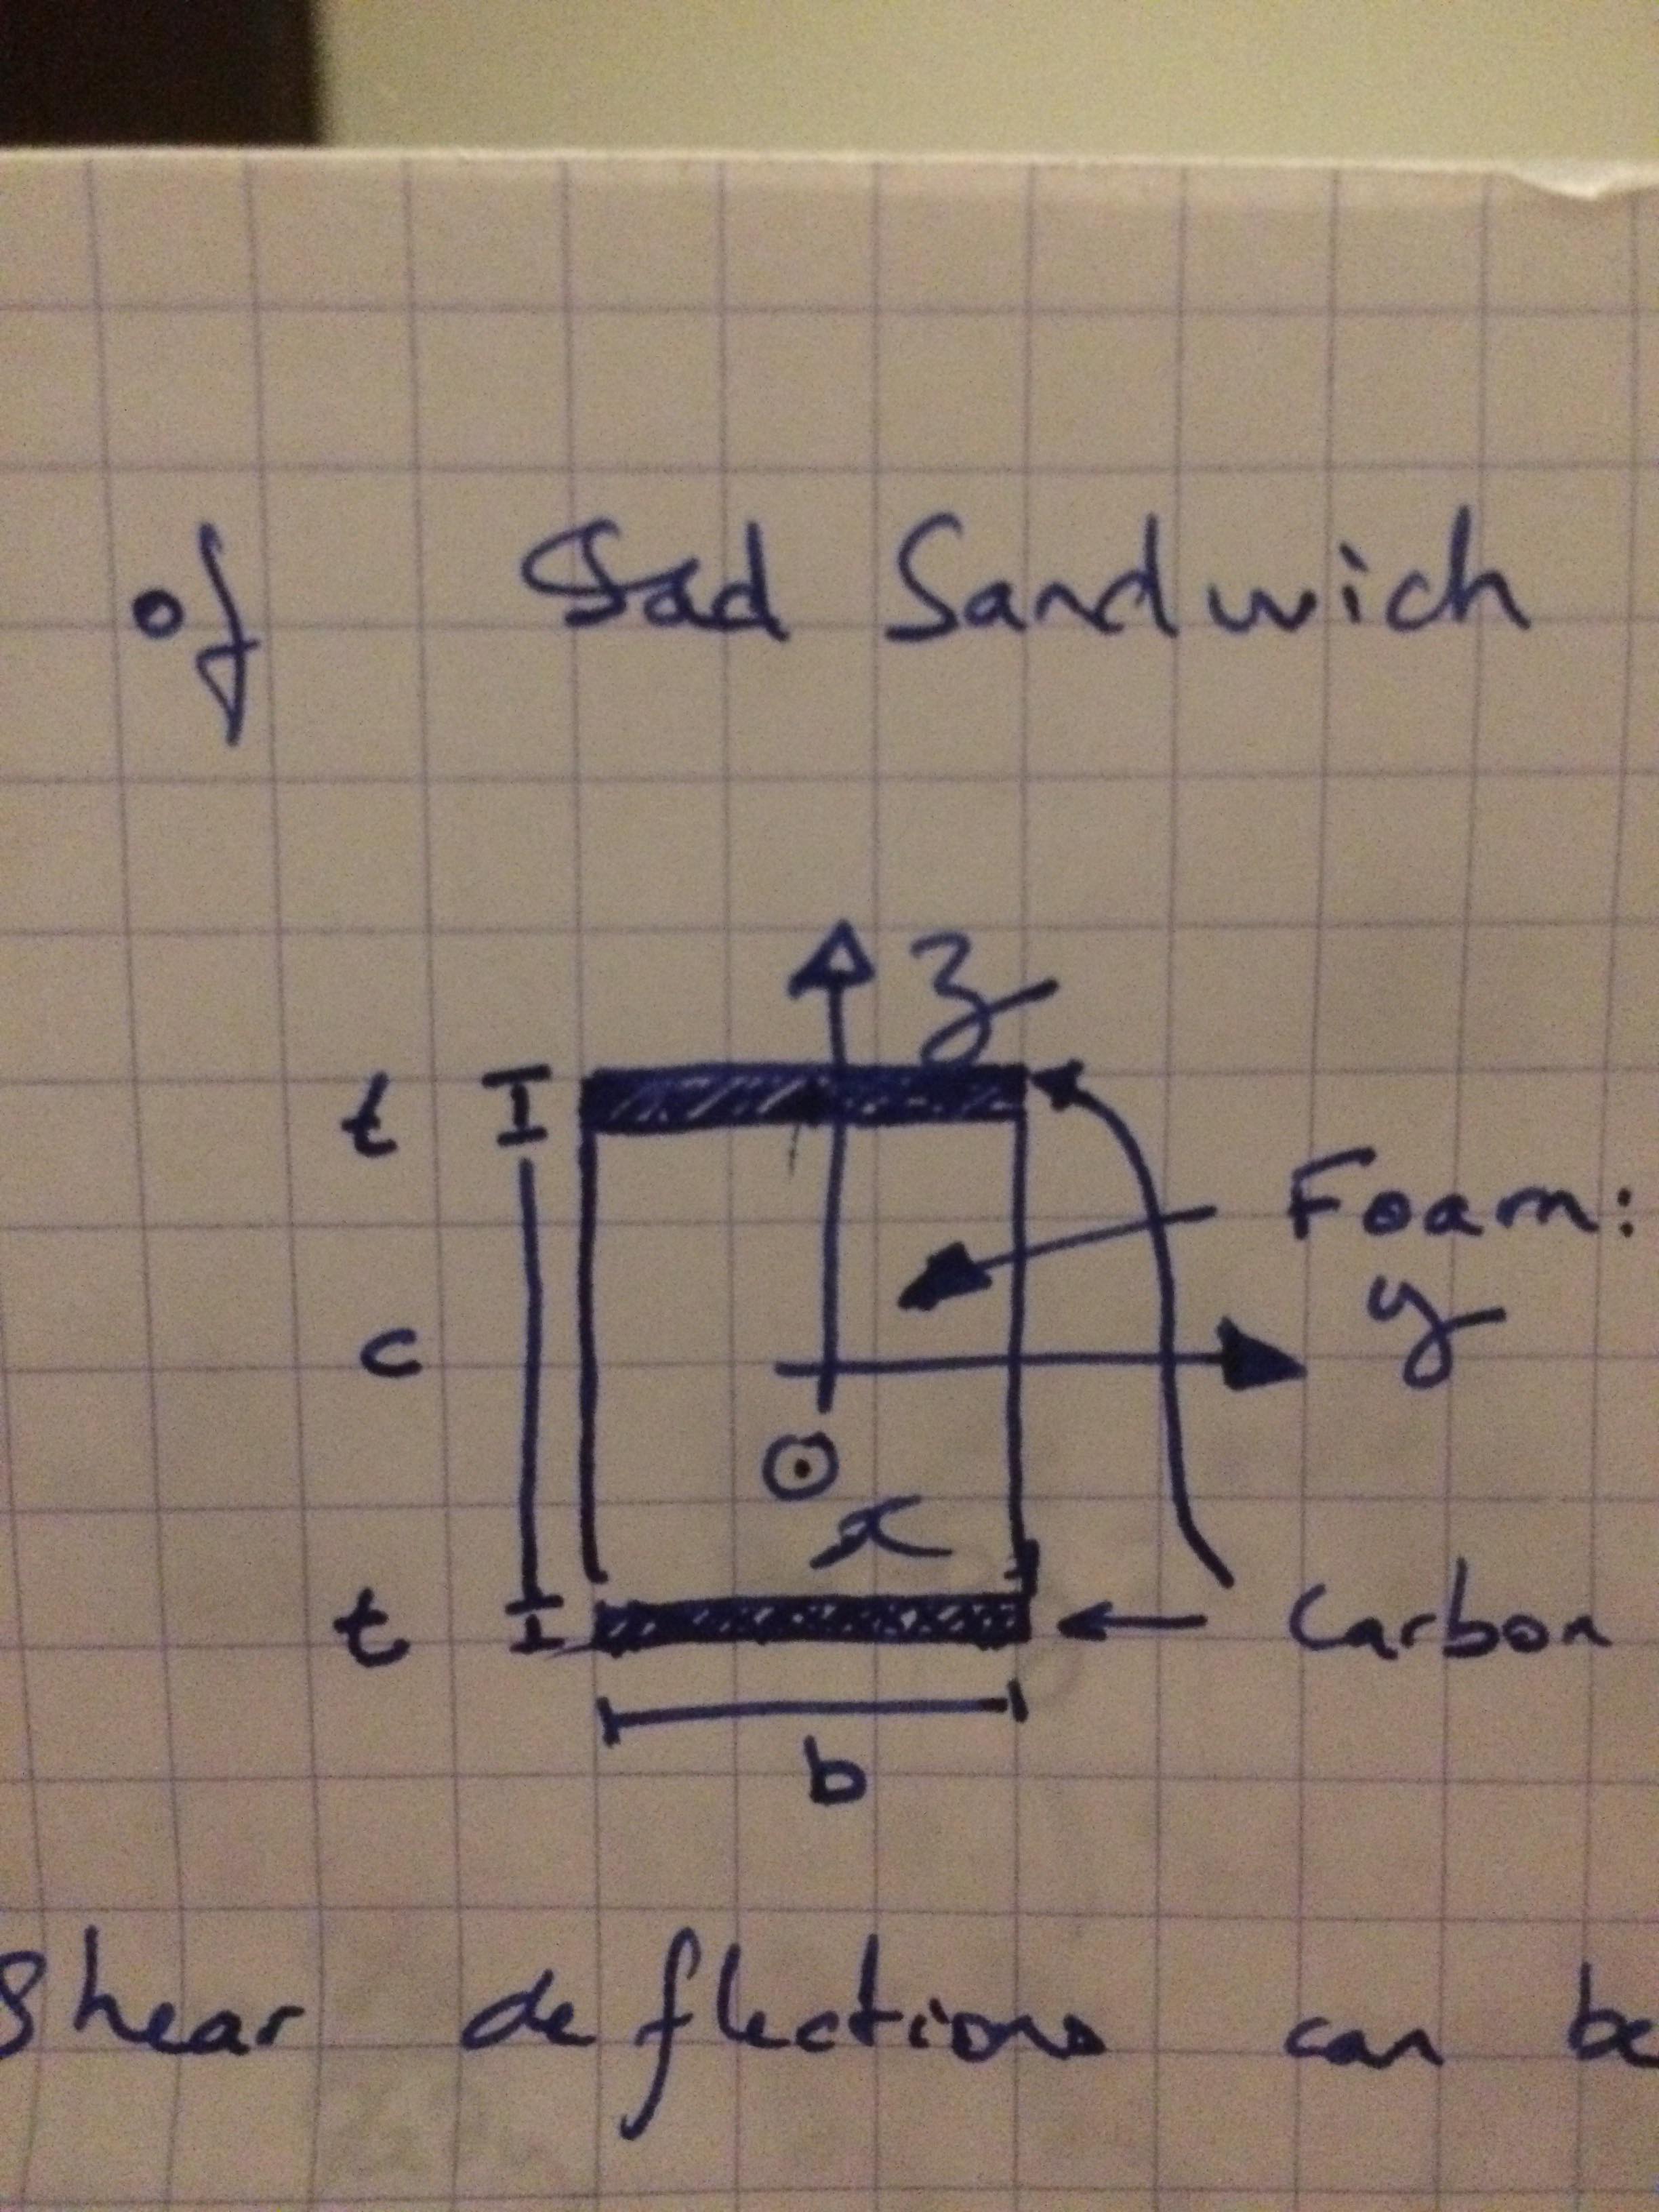 of Sad Sandwich
z
t
Foam:
y
c
x
t
Carbon
b
Shear deflections can be